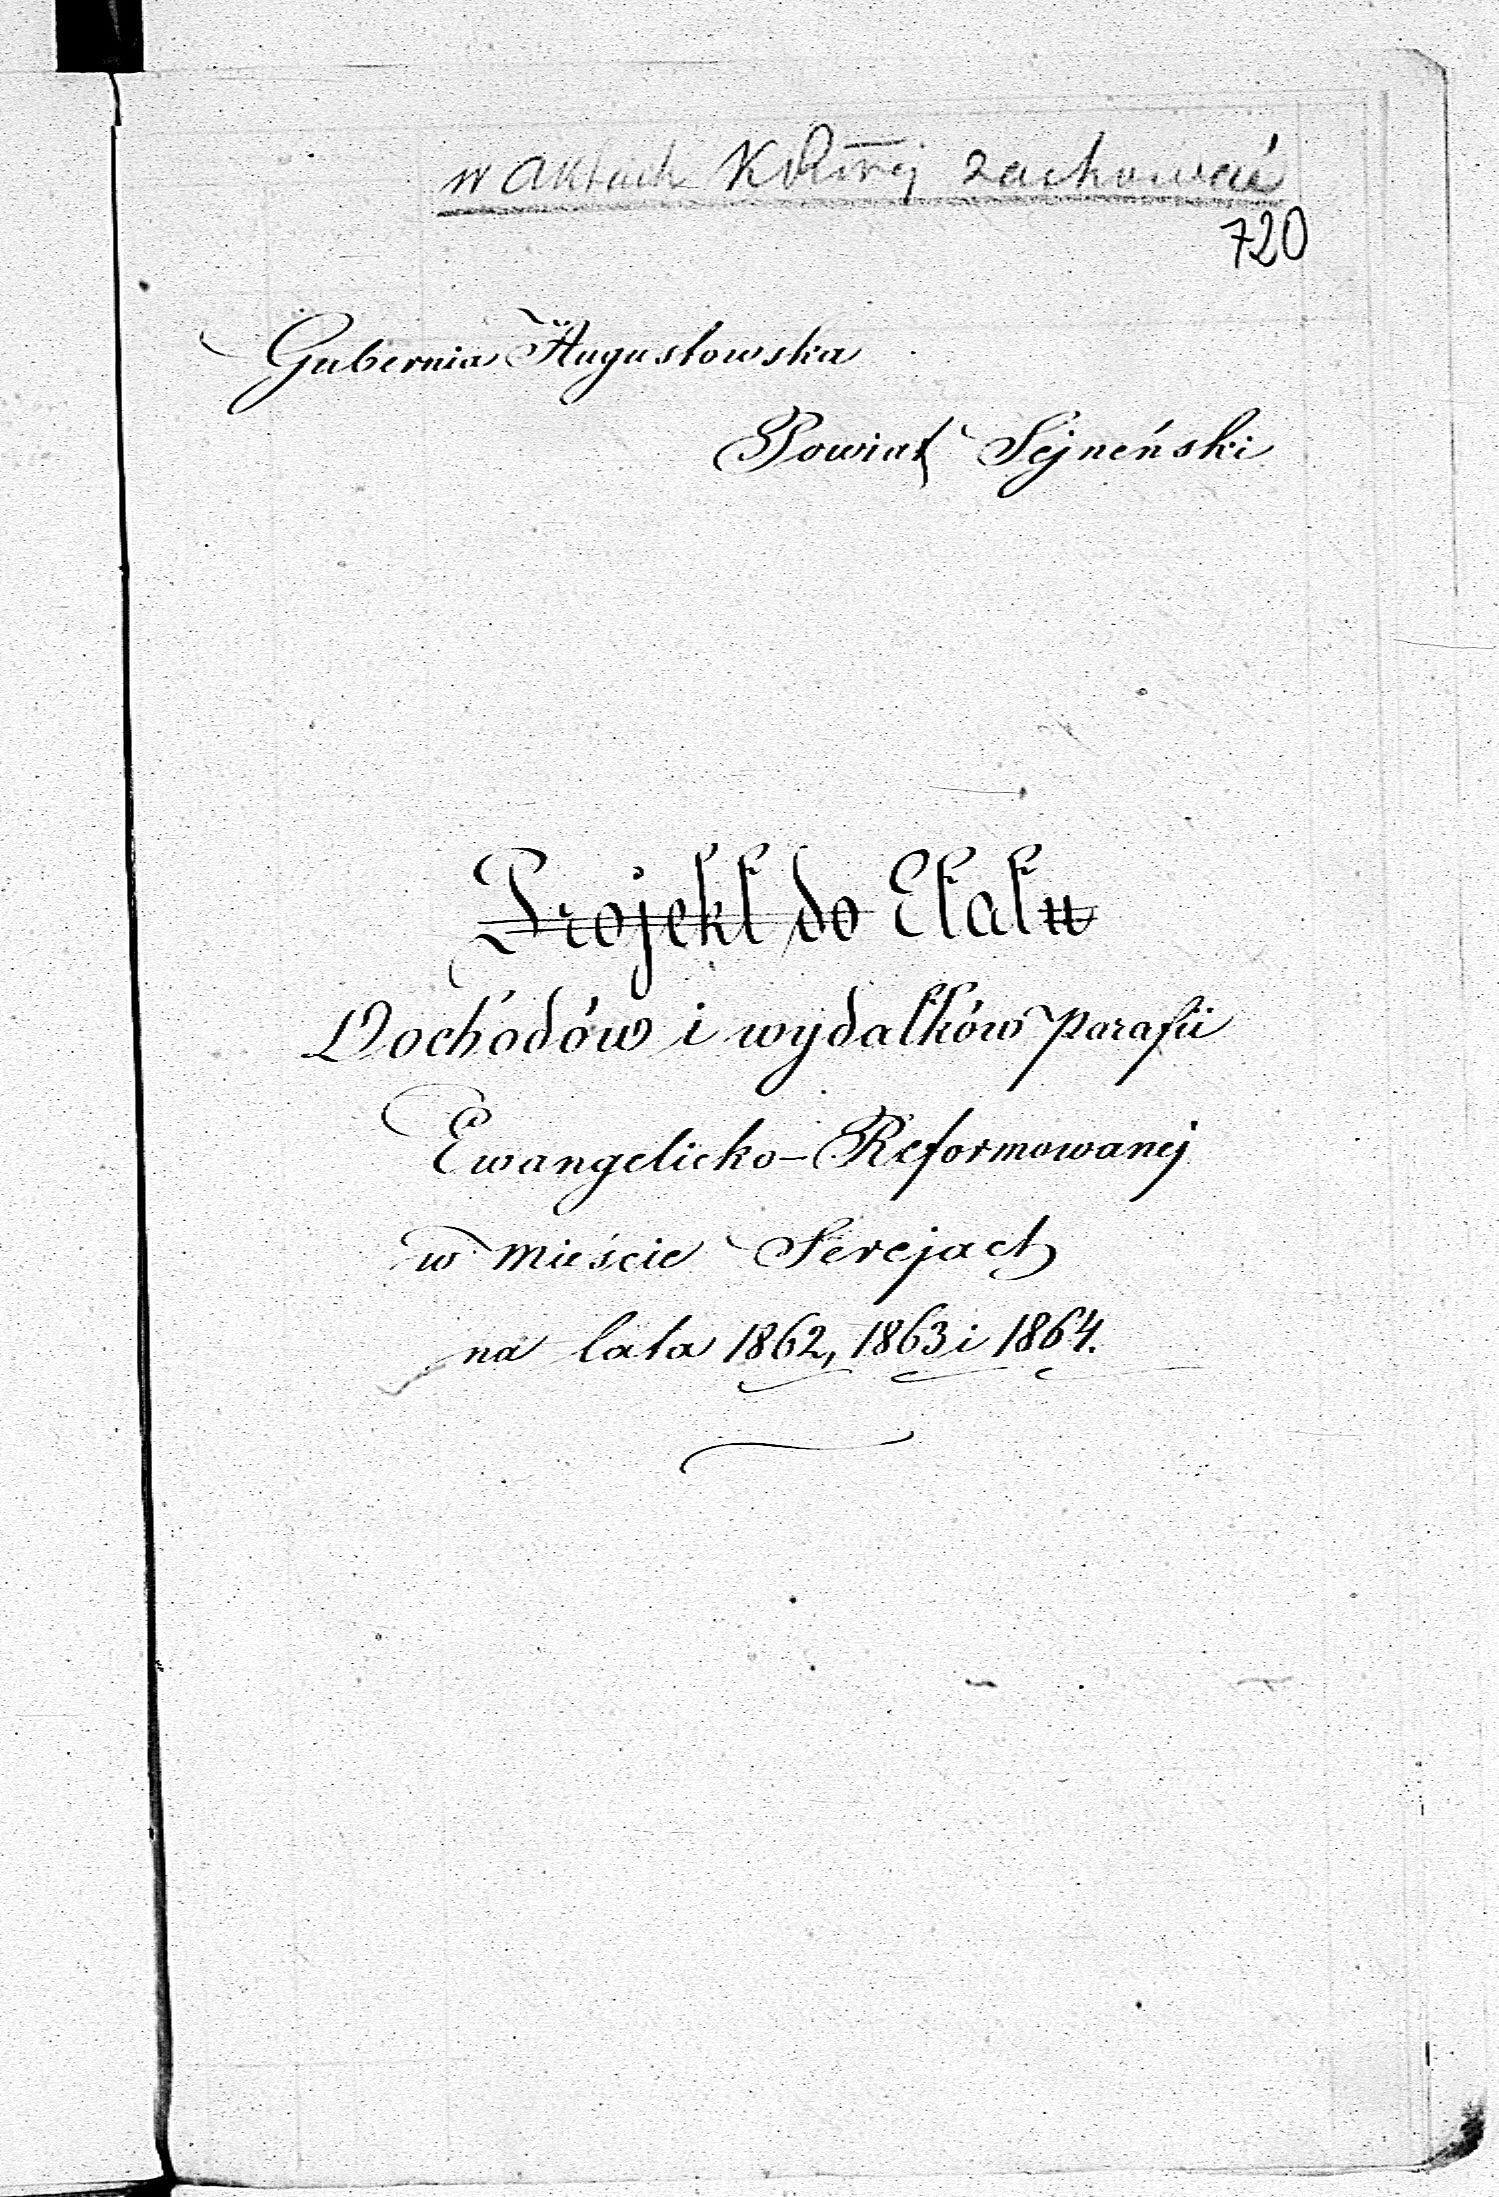 w aktach zachować
720
Gubernia Augustowska
Powiat Sejneński
Projekt do Etatu
Dochodów i wydatków parafii
Ewangelicko-Reformowanej
w mieście Serejach
na lata 1862, 1863 i 1864.